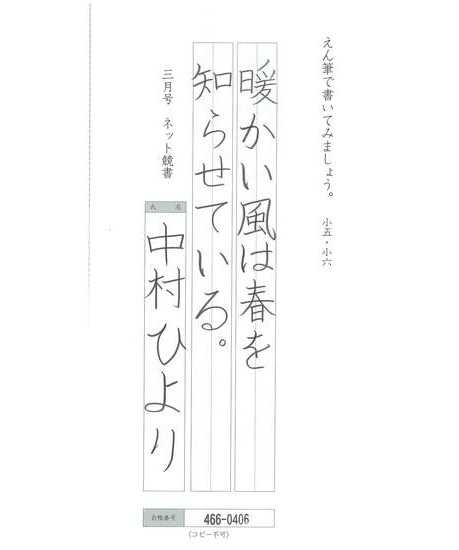 えん筆で書いてみましょう。 小五・小六
暖かい風は春を
知らせている。
三月号 ネット競書
氏名
中村ひより
台帳番号 466-0406
(コピー不可)